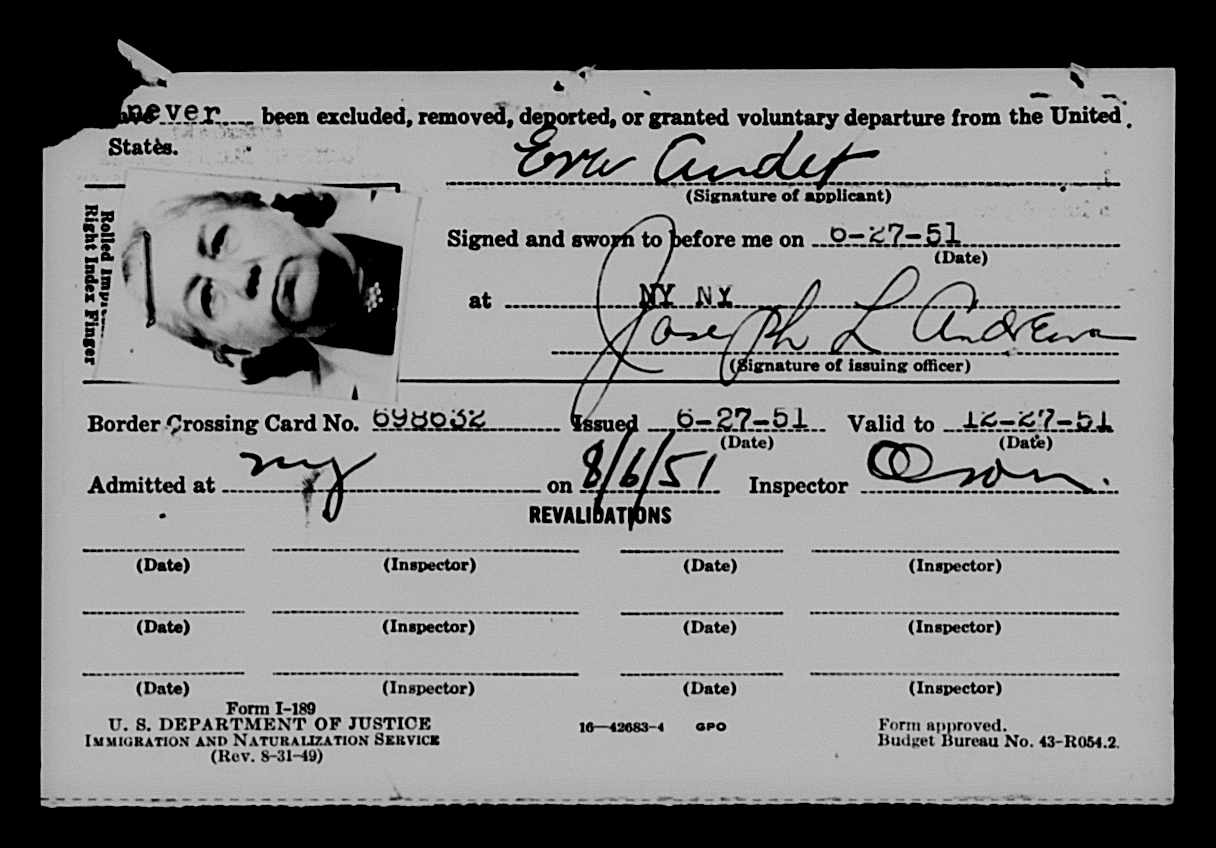 never been excluded, removed, deported, or granted voluntary departure from the United
States.
Eva Audet
(Signature of applicant)
Rolled
Right Index Finger
Signed and sworn to before me on 6-27-51
(Date)
at NY NY
Joseph L Andrews
(Signature of issuing officer)
Border Crossing Card No. 698632 Issued 6-27-51 Valid to 12-27-51
(Date) (Date)
Admitted at NY on 8/6/51 Inspector Olson.
REVALIDATIONS
(Date) (Inspector) (Date) (Inspector)
(Date) (Inspector) (Date) (Inspector)
(Date) (Inspector) (Date) (Inspector)
Form I-189
U. S. DEPARTMENT OF JUSTICE
IMMIGRATION AND NATURALIZATION SERVICE
(Rev. 8-31-49)
16—42683-4 GPO
Form approved.
Budget Bureau No. 43-R054.2.